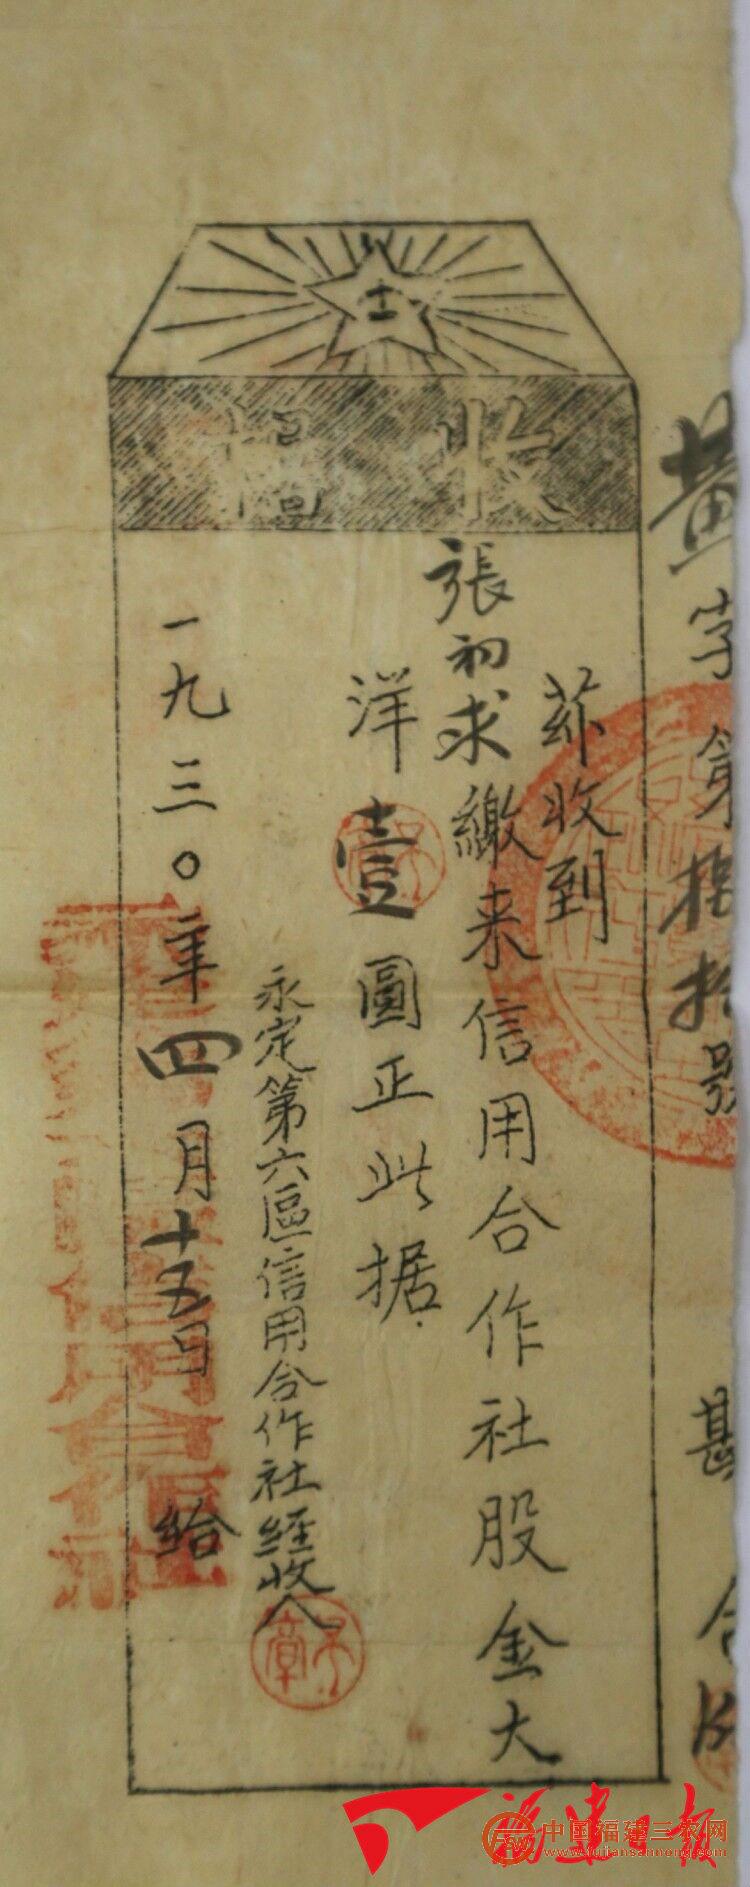 收據
茲收到
張初求繳来信用合作社股金大
洋壹圓正此据.
永定第六區信用合作社經收人
一九三〇年四月十五日 給
字第 拾號
福建日报
中国福建三农网
www.fujiansannong.com